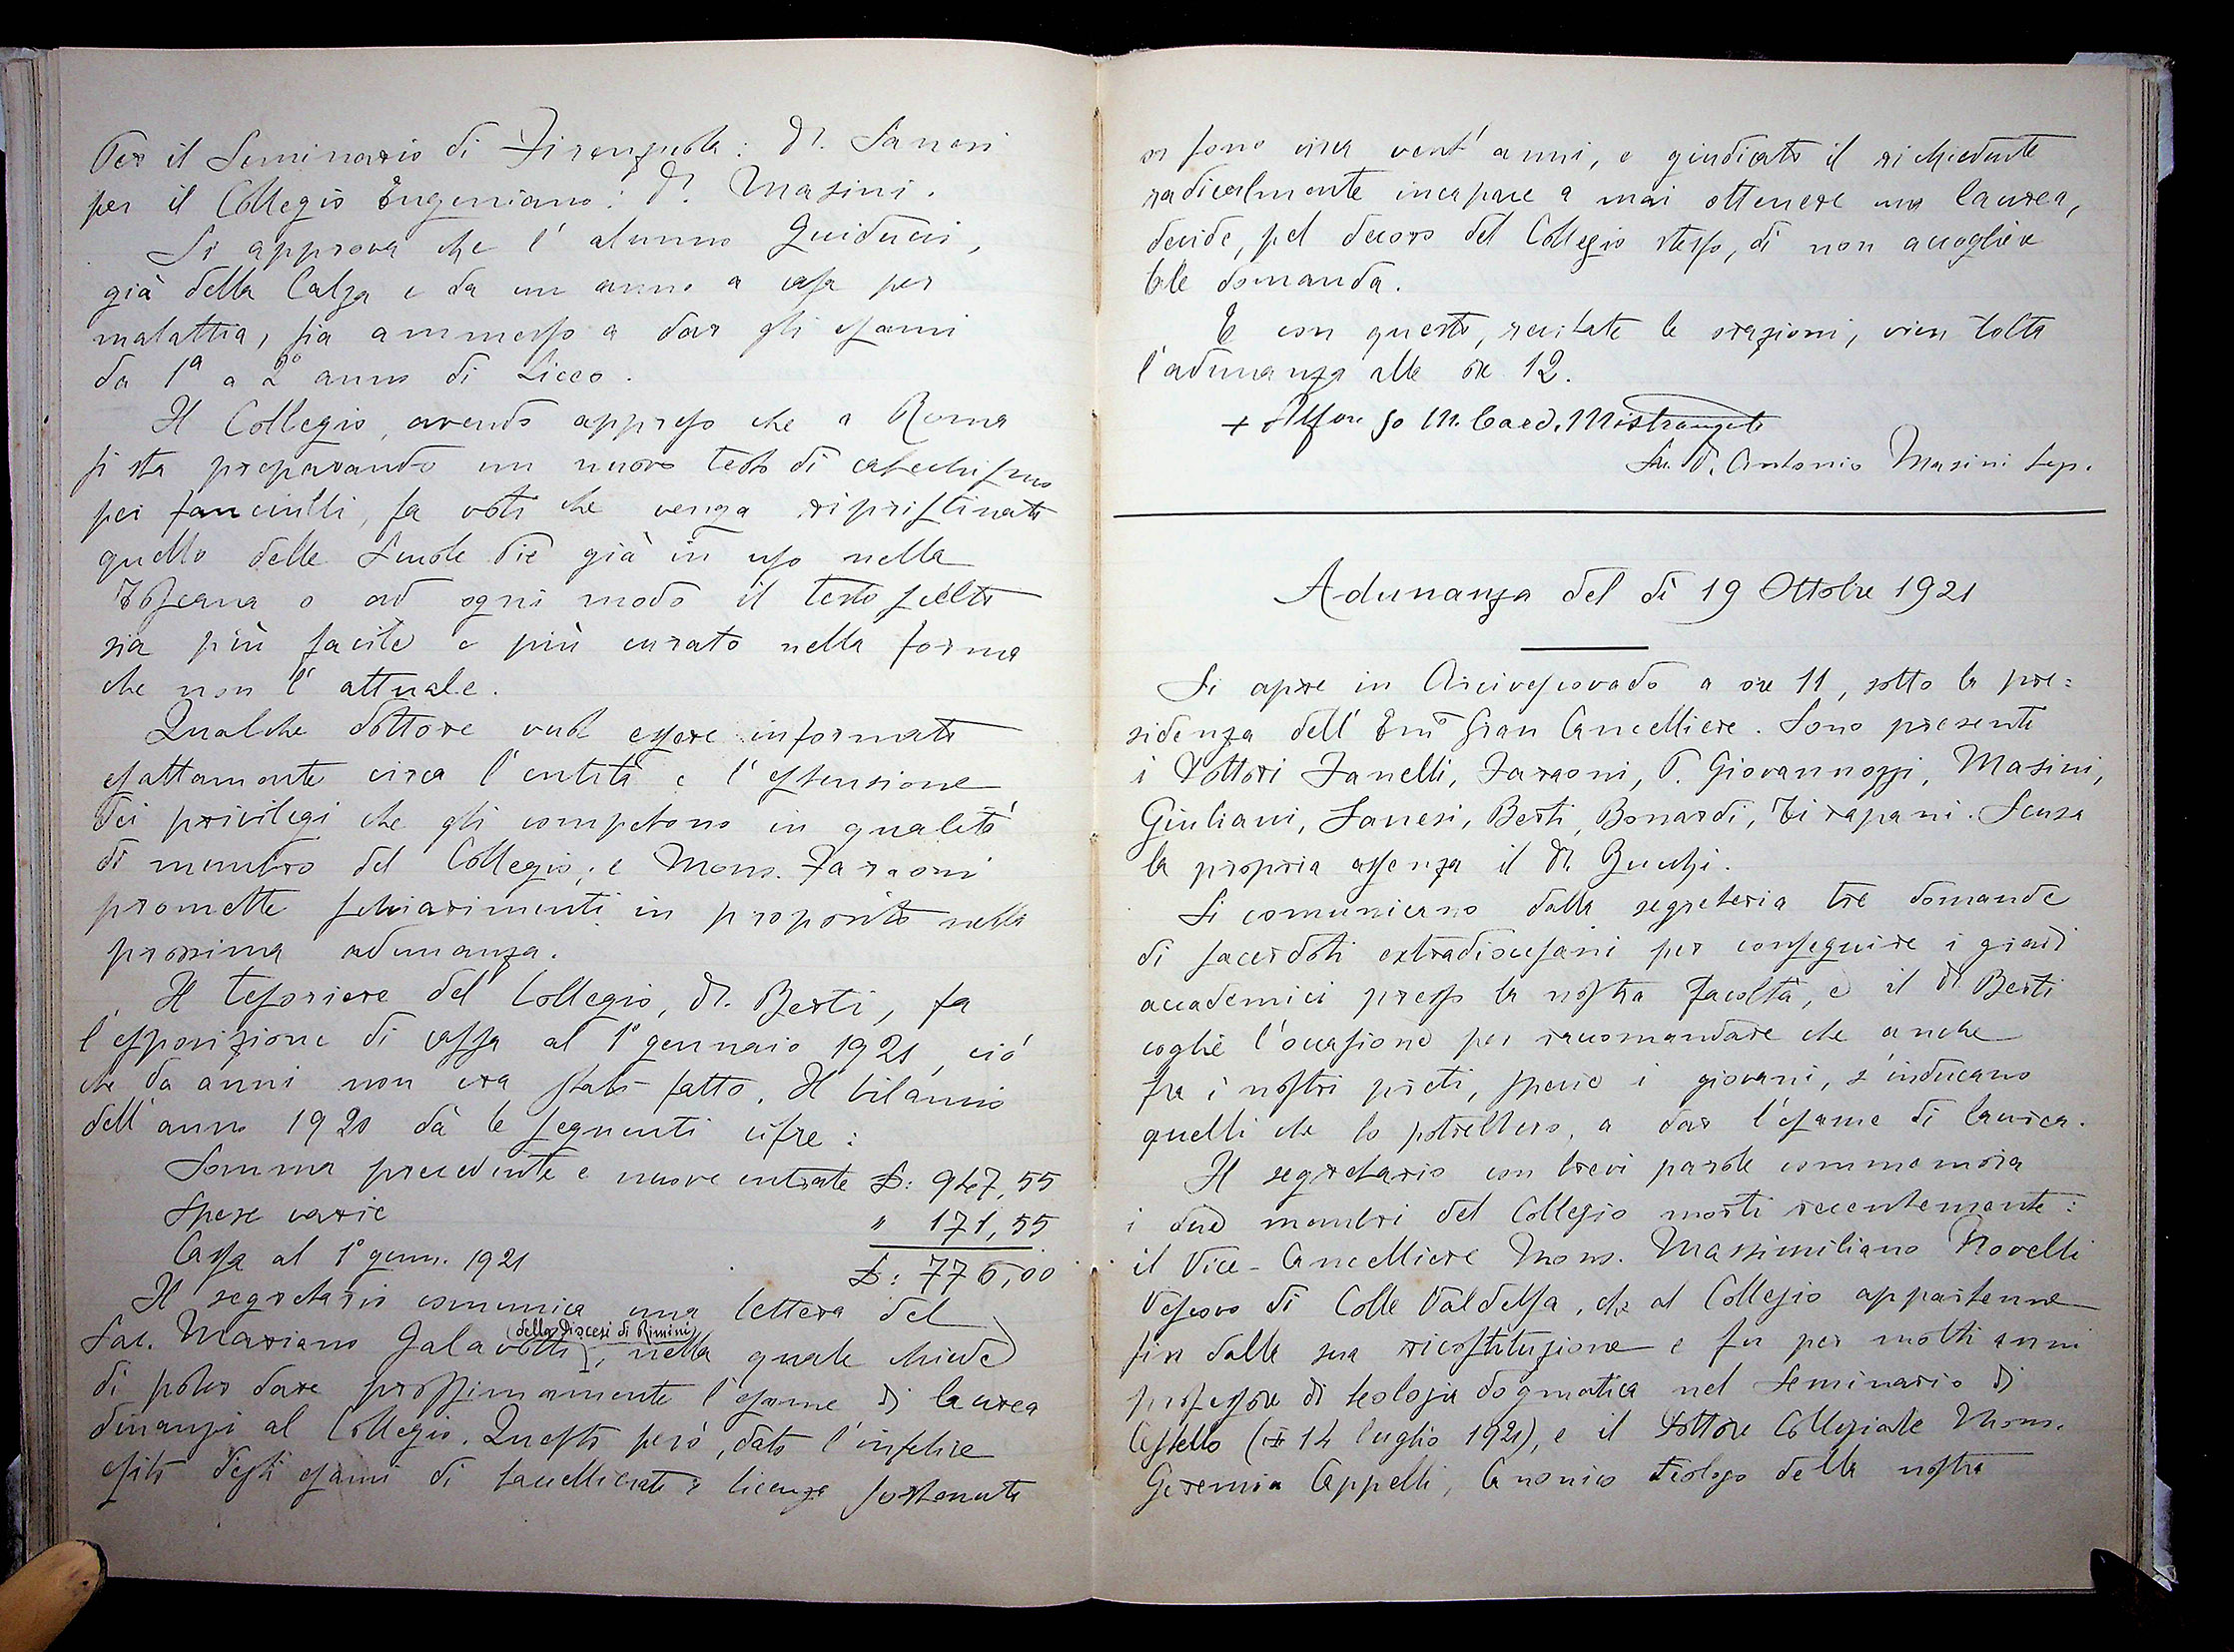 Per il Seminario di Firenzuola: Dr. Sanesi
per il Collegio Eugeniano: Dr. Masini.
Si approva che l'alunno Guiducci,
già della Calza e da un anno a casa per
malattia, sia ammesso a dar gli esami
da 1ª a 2º anno di Liceo.
Il Collegio, avendo appreso che a Roma
si sta preparando un nuovo testo di catechismo
pei fanciulli, fa voti che venga ripristinato
quello delle Scuole Pie già in uso nella
Toscana o ad ogni modo il testo scelto
sia più facile e più curato nella forma
che non l'attuale.
Qualche dottore vuol essere informato
esattamente circa l'entità e l'estensione
dei privilegi che gli competono in qualità
di membro del Collegio; e Mons. Faraoni
promette schiarimenti in proposito nella
prossima adunanza.
Il tesoriere del Collegio, Dr. Berti, fa
l'esposizione di cassa al 1º gennaio 1921, ciò
che da anni non era stato fatto. Il bilancio
dell'anno 1920 dà le seguenti cifre:
Somma precedente e nuove entrate £: 947,55
Spese varie " 171,55
Cassa al 1º genn. 1921 £: 776,00
Il segretario comunica una lettera del
Sac. Mariano Galavotti (della Diocesi di Rimini), nella quale chiede
di poter dare prossimamente l'esame di laurea
dinanzi al Collegio. Questo però, dato l'infelice
esito degli esami di baccellierato e licenza sostenuti
or sono circa vent'anni, e giudicato il richiedente
radicalmente incapace a mai ottenere una laurea,
decide, pel decoro del Collegio stesso, di non accogliere
tale domanda.
E con questo, recitate le orazioni, vien tolta
l'adunanza alle ore 12.
+ Alfonso M. Card. Mistrangelo
Sac. D. Antonio Masini Seg.
Adunanza del dì 19 Ottobre 1921
Si apre in Arcivescovado a ore 11, sotto la pre=
sidenza dell'Emo Gran Cancelliere. Sono presenti
i Dottori Zanelli, Faraoni, P. Giovannozzi, Masini,
Giuliani, Sanesi, Berti, Bonardi, Tirapani. Scusa
la propria assenza il Dr. Gucchi.
Si comunicano dalla segreteria tre domande
di sacerdoti extradiocesani per conseguire i gradi
accademici presso la nostra Facoltà, e il Dr. Berti
coglie l'occasione per raccomandare che anche
fra i nostri preti, specie i giovani, s'inducano
quelli che lo potrebbero, a dar l'esame di laurea.
Il segretario con brevi parole commemora
i due membri del Collegio morti recentemente:
il Vice-Cancelliere Mons. Massimiliano Novelli
Vescovo di Colle Valdelsa, che al Collegio appartenne
fin dalla sua ricostituzione e fu per molti anni
professore di teologia dogmatica nel Seminario di
Castello (14 luglio 1921), e il Dottore Collegiale Mons.
Geremia Cappelli, Canonico Teologo della nostra